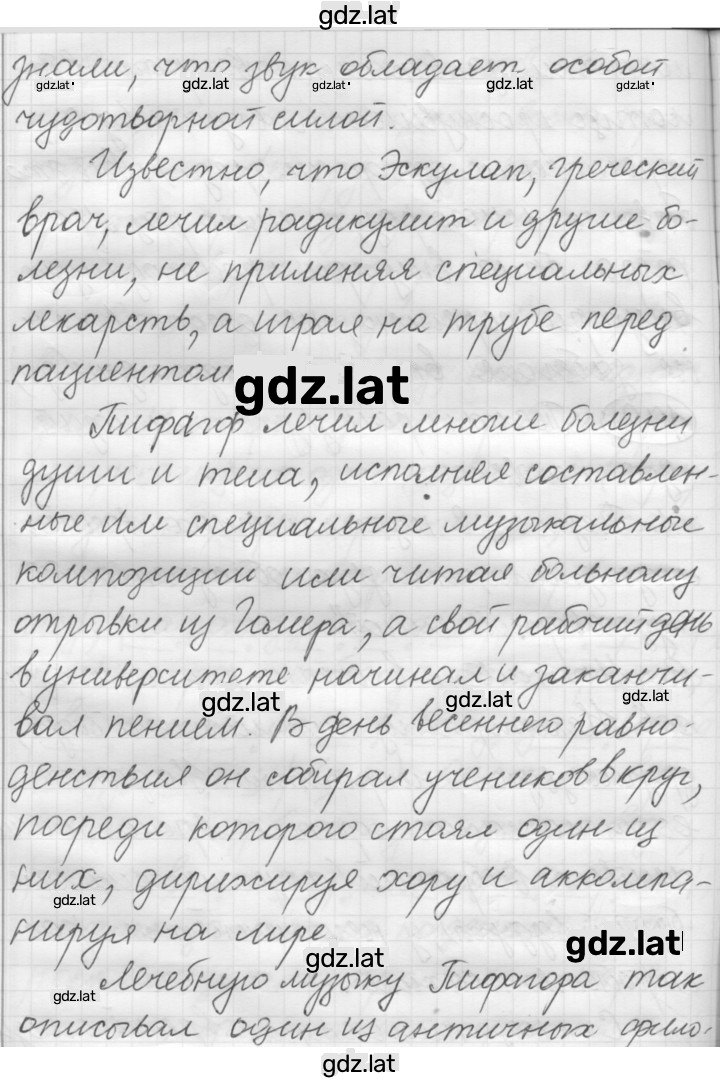 gdz.lat
знали, что звук обладает особой
gdz.lat gdz.lat gdz.lat gdz.lat gdz.lat
чудотворной силой.
Известно, что Эскулап, греческий
врач, лечил радикулит и другие бо-
лезни, не применяя специальных
лекарств, а играя на трубе перед
пациентом
gdz.lat
Пифагор лечил многие болезни
души и тела, исполняя составлен-
ные им специальные музыкальные
композиции или читая больному
отрывки из Гомера, а свой рабочий день
в университете начинал и заканчи-
gdz.lat gdz.lat gdz.lat
вал пением. В день весеннего равно-
денствия он собирал учеников в круг,
посреди которого стоял один из
них, дирижируя хору и аккомпа-
gdz.lat
нируя на лире
gdz.lat gdz.lat
Лечебную музыку Пифагора так
gdz.lat
описывал один из античных фило-
gdz.lat